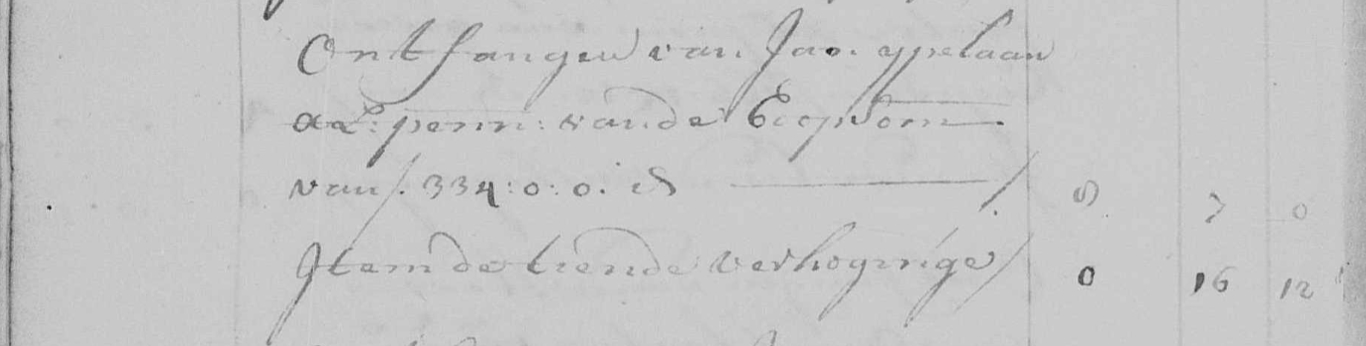 Ontfangen van Jan ypelaan
de xl: penn: vande Coopsom
van f. 334:0:0. is f. 8 7 0
Item de tiende verhoginge f 0 16 12